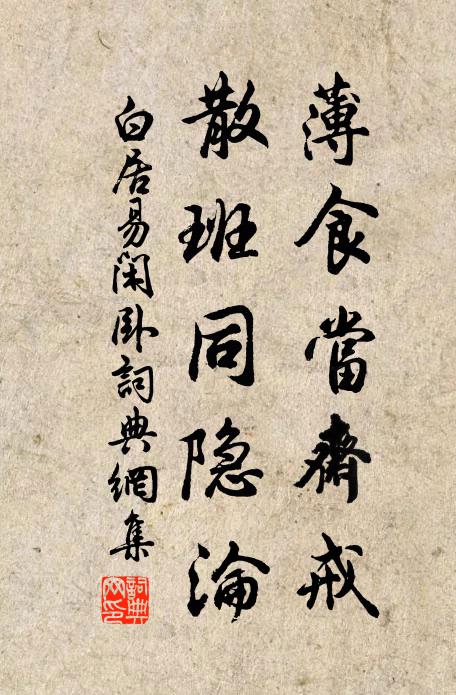 薄食當齋戒
散班同隐淪
白居易閑卧詞典網集
詞典網印